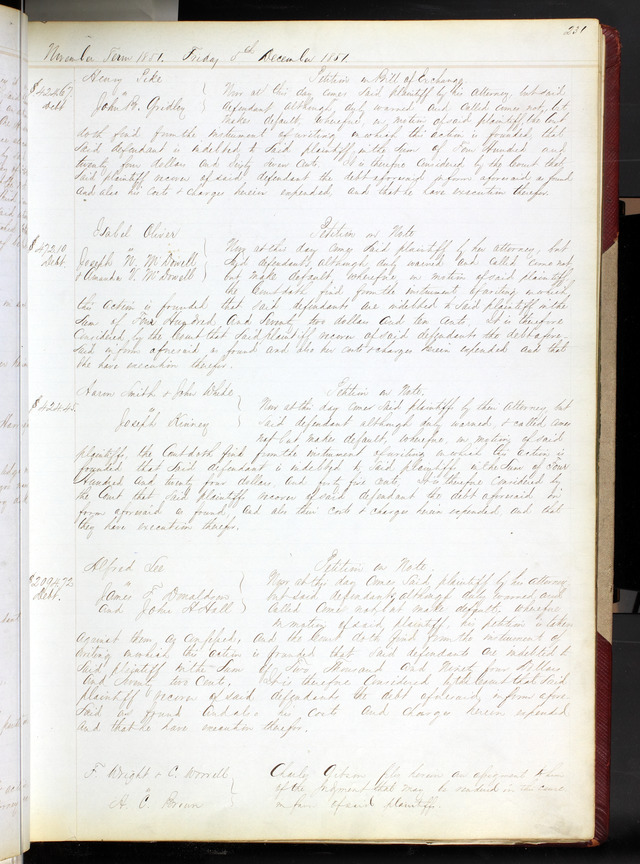 231
November Term 1851. Friday 5th December 1851.
Henry Pike Petition on Bill of Exchange
$424.67 vs Now at this day comes said plaintiff by his Attorney, but said
Debt John B. Gridley defendant although duly warned and called comes not, but
makes default, wherefore, on motion of said plaintiff, the Court
doth find from the instrument of writing on which this action is founded, that
said defendant is indebted to said plaintiff in the sum of Four Hundred and
twenty four dollars and sixty seven cents, It is therefore Considered by the Court that
said plaintiff recover of said defendant the debt aforesaid in form aforesaid as found
and also his costs & charges herein expended and that he have execution therefor.
Isabel Oliver Petition on Note
$ 472.10 vs Now at this day comes said plaintiff by her attorney, but
Debt. Joseph N. McDowell said defendants, although duly warned and called come not
& Amanda V. McDowell but make default, wherefore on motion of said plaintiff
the Court doth find from the instrument of writing on which
this action is founded that said defendants are indebted to said plaintiff in the
sum of Four Hundred and Seventy two dollars and ten cents. It is therefore
Considered by the Court that said plaintiff recover of said defendants the debt afore-
said in form aforesaid as found and also her costs & charges herein expended and that
she have execution therefor.
Aaron Smith & John Petition on Note.
$424.45 vs Now at this day comes said plaintiff by their Attorney, but
Joseph Kinney said defendant although duly warned, & called comes
not but makes default, wherefore, on motion of said
plaintiffs, the Court doth find from the instrument of writing on which this action is
founded that said defendant is indebted to said plaintiffs in the sum of Four
Hundred and twenty four dollars and forty five cents, It is therefore Considered by
the Court that said plaintiff recover of said defendant the debt aforesaid in
form aforesaid as found, and also their costs & charges herein expended and that
they have execution therefor.
Alfred Lee Petition on Note.
$2094.72 vs Now at this day comes said plaintiff by his Attorney
Debt. James F. Donaldson but said defendants, although duly warned, and
and John H Hall called come not but make default, wherefore
on motion of said plaintiff his petition is taken
against them, as confessed, and the Court doth find from the instrument of
writing on which the action is founded that said defendants are indebted to
said plaintiff in the sum of Two Thousand and Ninety four Dollars
and Seventy two Cents, It is therefore Considered by the Court that said
plaintiff recover of said defendants the debt aforesaid in form afore-
said as found and also his costs and charges herein expended
and that he have execution therefor.
F. Wright & C. Worrell Charles Gibson files herein an assignment to him
vs of the judgment that may be rendered in the cause
A. C. Brown in favor of said plaintiffs.